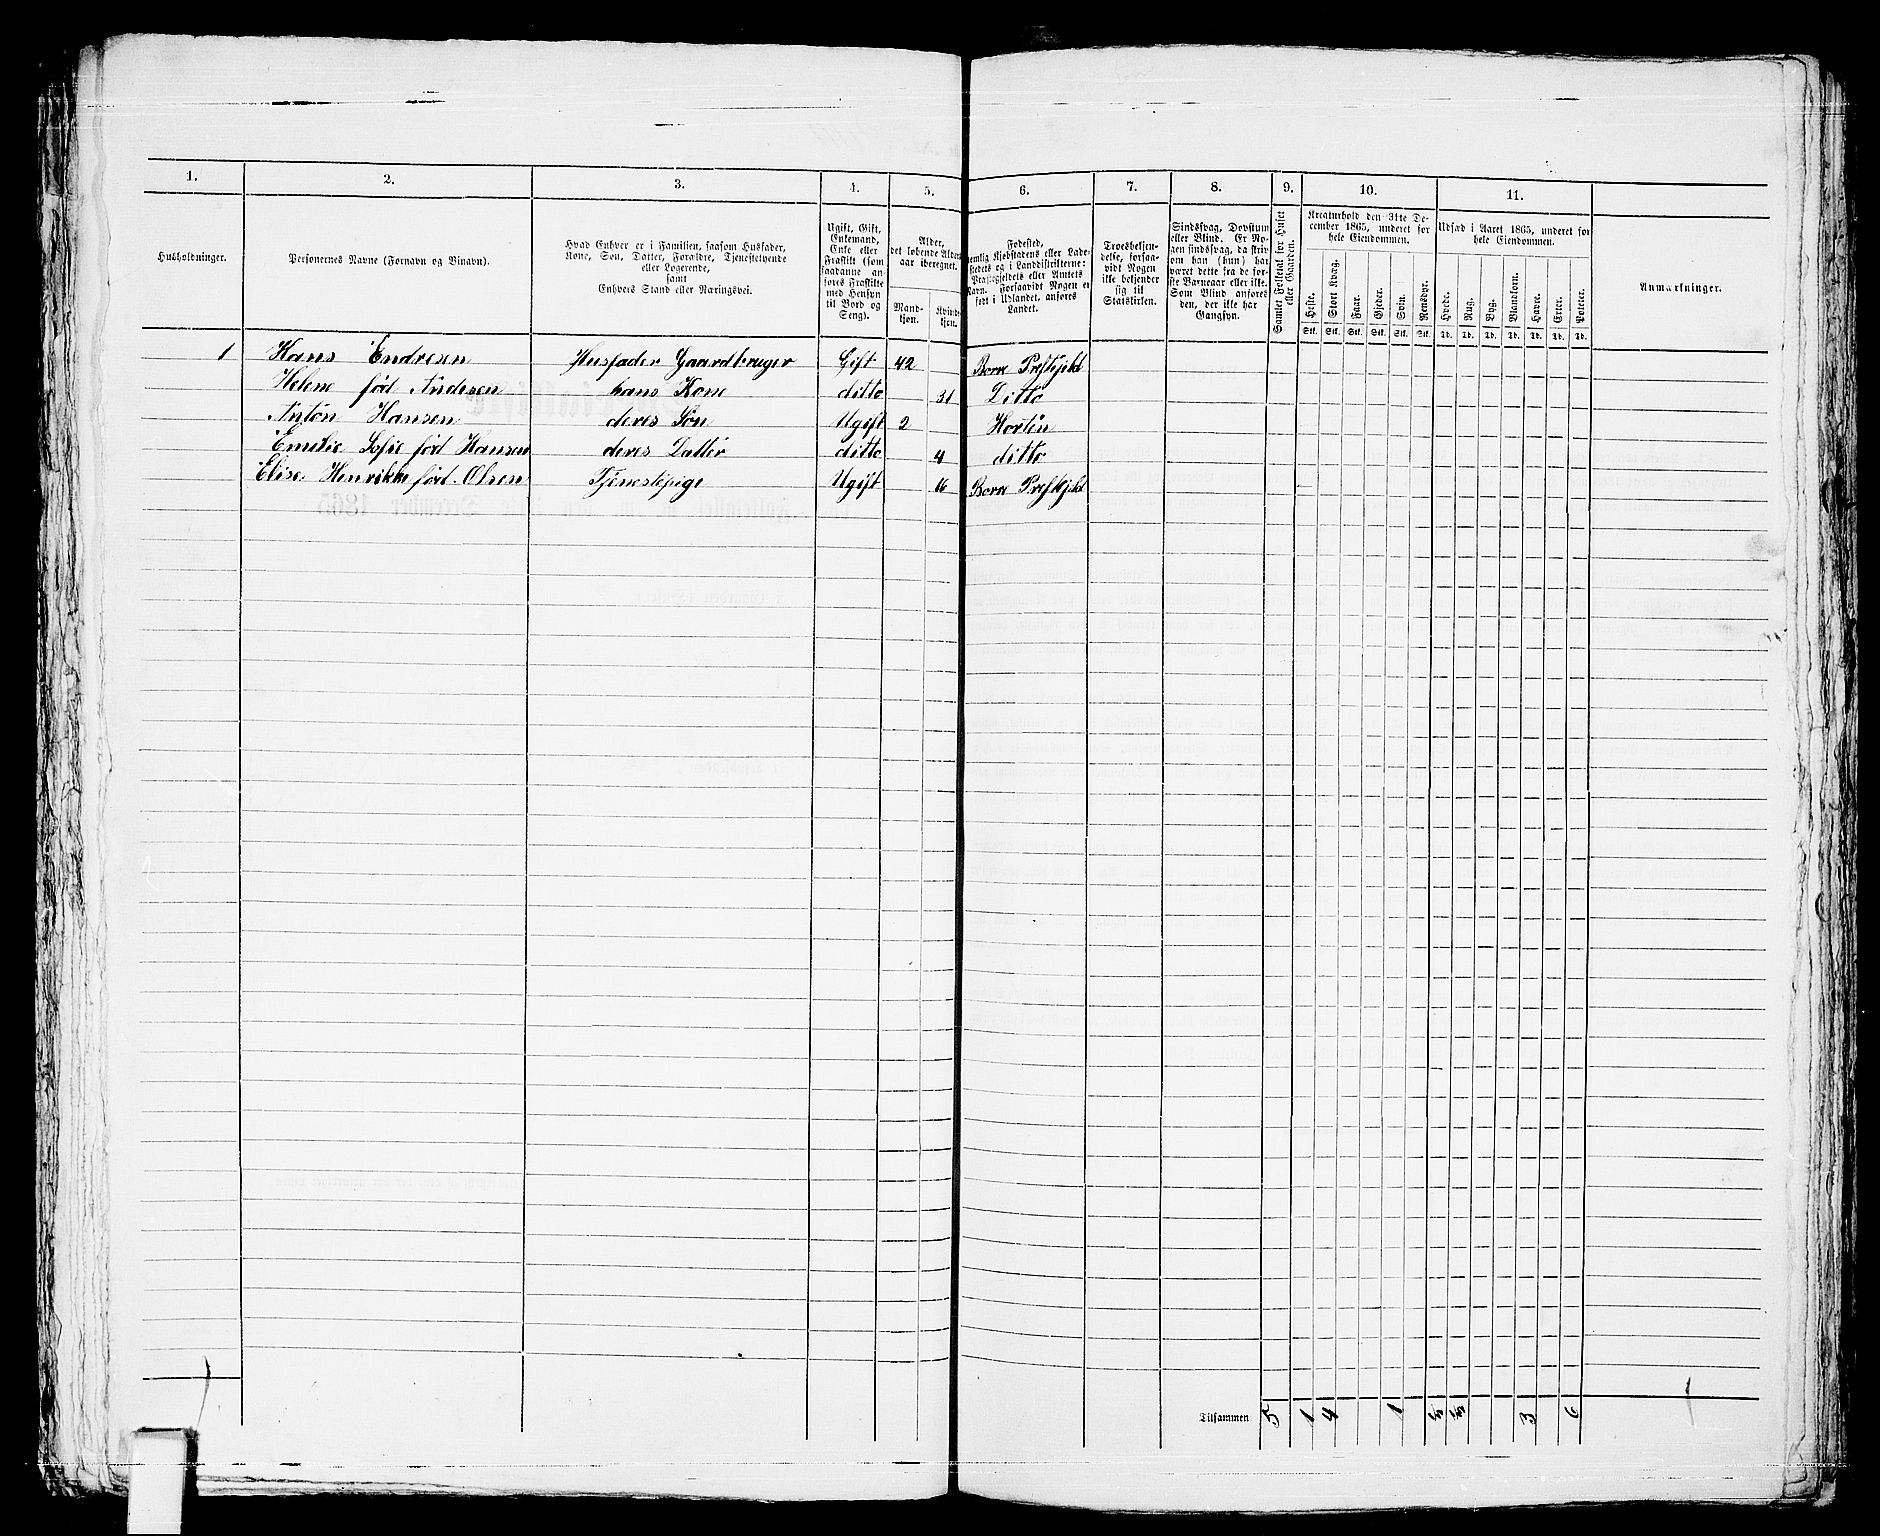 1. 2. 3. 4. 5. 6. 7. 8. 9. 10. 11.
Husholdninger.
Personernes Navne (Fornavn og Binavn).
Hvad Enhver er i Familien, saasom Husfader,
Kone, Søn, Datter, Forældre, Tjenestetyende
eller Logerende,
samt
Enhvers Stand eller Næringsvei.
Ugift, Gift,
Enkemand,
Enke eller
Fraskilt (som
saadanne an-
føres Fraskilte
med Hensyn
til Bord og
Seng).
Alder,
det løbende Alders-
aar iberegnet.
Mand-
kjøn.
Kvind-
kjøn.
Fødested,
nemlig Kjøbstadens eller Lade-
stedets og i Landdistrikterne:
Præstegjeldets eller Amtets
Navn. Forsaavidt Nogen er
født i Udlandet, anføres
Landet.
Troesbekjen-
delse, forsaa-
vidt Nogen
ikke bekjender
sig til
Statskirken.
Sindssvag, Døvstum
eller Blind. Er No-
gen sindssvag, da skriv
om han (hun) har
været dette fra de før-
ste Barneaar eller ikke.
Som Blind anføres
den, der ikke har
Gangsyn.
Samlet Folketal for Huset
eller Gaarden.
Kreaturhold den 31te De-
cember 1865, underet for
hele Eiendommen.
Heste. Stort Kvæg. Faar. Gjeder. Svin. Rensdyr.
Stk. Stk. Stk. Stk. Stk. Stk.
Udsæd i Aaret 1865, underet for
hele Eiendommen.
Hvede. Rug. Byg. Blandkorn. Havre. Erter. Poteter.
Td. Td. Td. Td. Td. Td. Td.
Anmærkninger.
1 Hans Endresen Husfader Gaardbruger Gift 42 Borre Præstgjeld
Helene fød Andersen hans Kone ditto 31 Ditto
Anton Hansen deres Søn Ugift 2 Horten
Emilie Sofie fød Hansen deres Datter ditto 4 ditto
Elise Henrikke fød Olsen Tjenestepige Ugift 16 Borre Præstgjeld
Tilsammen 5 1 4 1 3 6